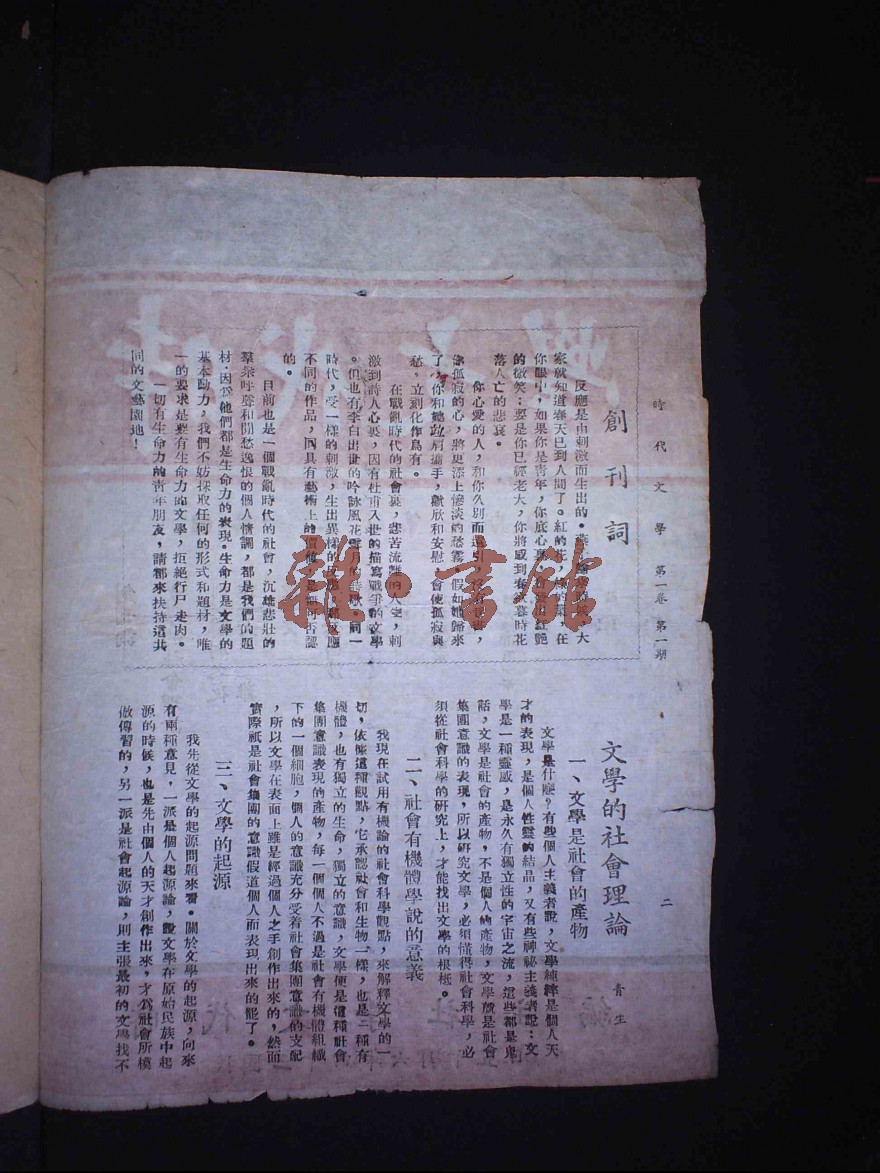 時代文學 第一卷 第一期
二
創刊詞
反應是由刺激而生出的。
家就知道春天已到人間了。紅的花
你眼中,如果你是青年,你底心裏
的微笑;要是你已經老大,你將感到春
暮時花
落人亡的悲哀。
你心愛的人,和你久別而
孤寂的心,將更添上慘淡的愁霧。假如她歸來
了,你和她並肩攜手,歡欣和安慰,會使孤寂與
愁,立刻化作烏有。
在戰亂時代的社會裏,悲苦流離的人生,刺
激到詩人心裏,因有杜甫入世的描寫戰爭的文學
。但也有李白出世的吟詠風花雪月的詩歌。同一
時代,受一樣的刺激,生出異樣的反應
不同的作品,同具有藝術上的價值,是無可否認
的。
目前也是一個戰亂時代的社會,沉雄悲壯的
羣衆呼聲和閒愁逸恨的個人情調,都是我們的題
材,因爲他們都是生命力的表現。生命力是文學的
基本動力,我們不妨採取任何的形式和題材,唯
一的要求是要有生命力的文學,拒絕行尸走肉。
一切有生命力的青年朋友,請都來扶持這共
同的文藝園地!
文學的社會理論
青生
一、文學是社會的產物
文學是什麽?有些個人主義者說,文學純粹是個人天
才的表現,是個人性靈的結晶,又有些神祕主義者說:文
學是一種靈感,是永久有獨立性的宇宙之流,這些都是鬼
話,文學是社會的產物,不是個人的產物,文學祇是社會
集團意識的表現,所以研究文學,必須懂得社會科學,必
須從社會科學的研究上,才能找出文學的根柢。
二、社會有機體學說的意義
我現在試用有機論的社會科學觀點,來解釋文學的一
切,依據這種觀點,它承認社會和生物一樣,也是一種有
機體,也有獨立的生命,獨立的意識,文學便是這種社會
集團意識表現的產物,每一個個人不過是社會有機體組織
下的一個細胞,個人的意識充分受着社會集團意識的支配
,所以文學在表面上雖是經過個人之手創作出來的,然而
實際祇是社會集團的意識假道個人而表現出來的罷了。
三、文學的起源
我先從文學的起源問題來看。關於文學的起源,向來
有兩種意見,一派是個人起源論,說文學在原始民族中起
源的時候,也是先由個人的天才創作出來,才爲社會所模
倣傳習的,另一派是社會起源論,則主張最初的文學找不
雜·書館